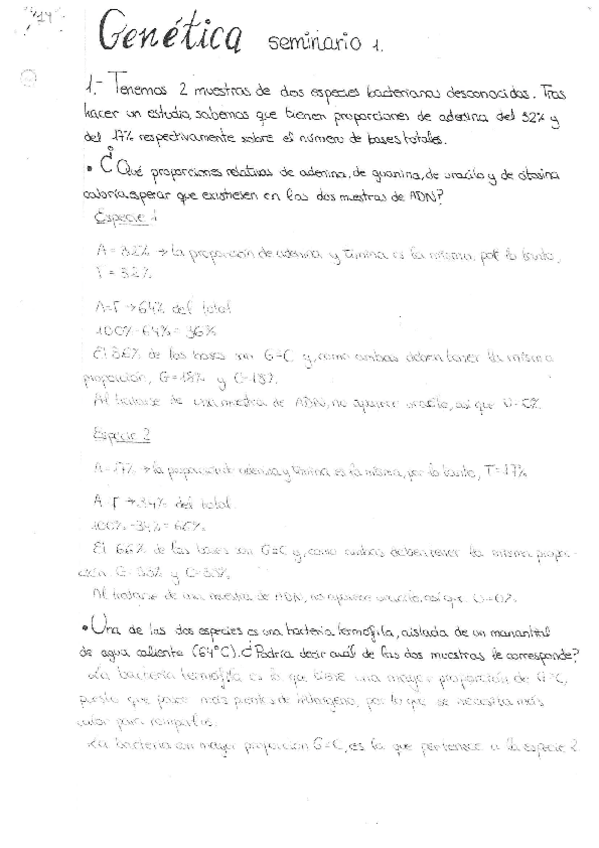 Genética seminario 1.
1.- Tenemos 2 muestras de dos especies bacterianas desconocidas. Tras
hacer un estudio, sabemos que tienen proporciones de adenina del 32% y
del 17% respectivamente sobre el número de bases totales.
• ¿Qué proporciones relativas de adenina, de guanina, de uracilo y de citosina
cabría esperar que existiesen en las dos muestras de ADN?
Especie 1
A = 32% → la proporción de adenina y timina es la misma, por lo tanto,
T = 32%
A=T → 64% del total
100% - 64% = 36%
El 36% de las bases son G=C y, como ambas deben tener la misma
proporción, G=18% y C=18%.
Al tratarse de una muestra de ADN, no aparece uracilo, así que U=0%
Especie 2
A=17% → la proporción de adenina y timina es la misma, por lo tanto, T=17%
A=T → 34% del total
100% - 34% = 66%
El 66% de las bases son G=C y, como ambas deben tener la misma propor-
ción G=33% y C=33%.
Al tratarse de una muestra de ADN, no aparece uracilo, así que U=0%
• Una de las dos especies es una bacteria termófila, aislada de un manantial
de agua caliente (64°C). ¿Podría decir cuál de las dos muestras le corresponde?
La bacteria termófila es la que tiene una mayor proporción de G=C,
puesto que posee más puentes de hidrógeno, por lo que se necesita más
calor para romperlos.
La bacteria con mayor proporción G=C, es la que pertenece a la especie 2.